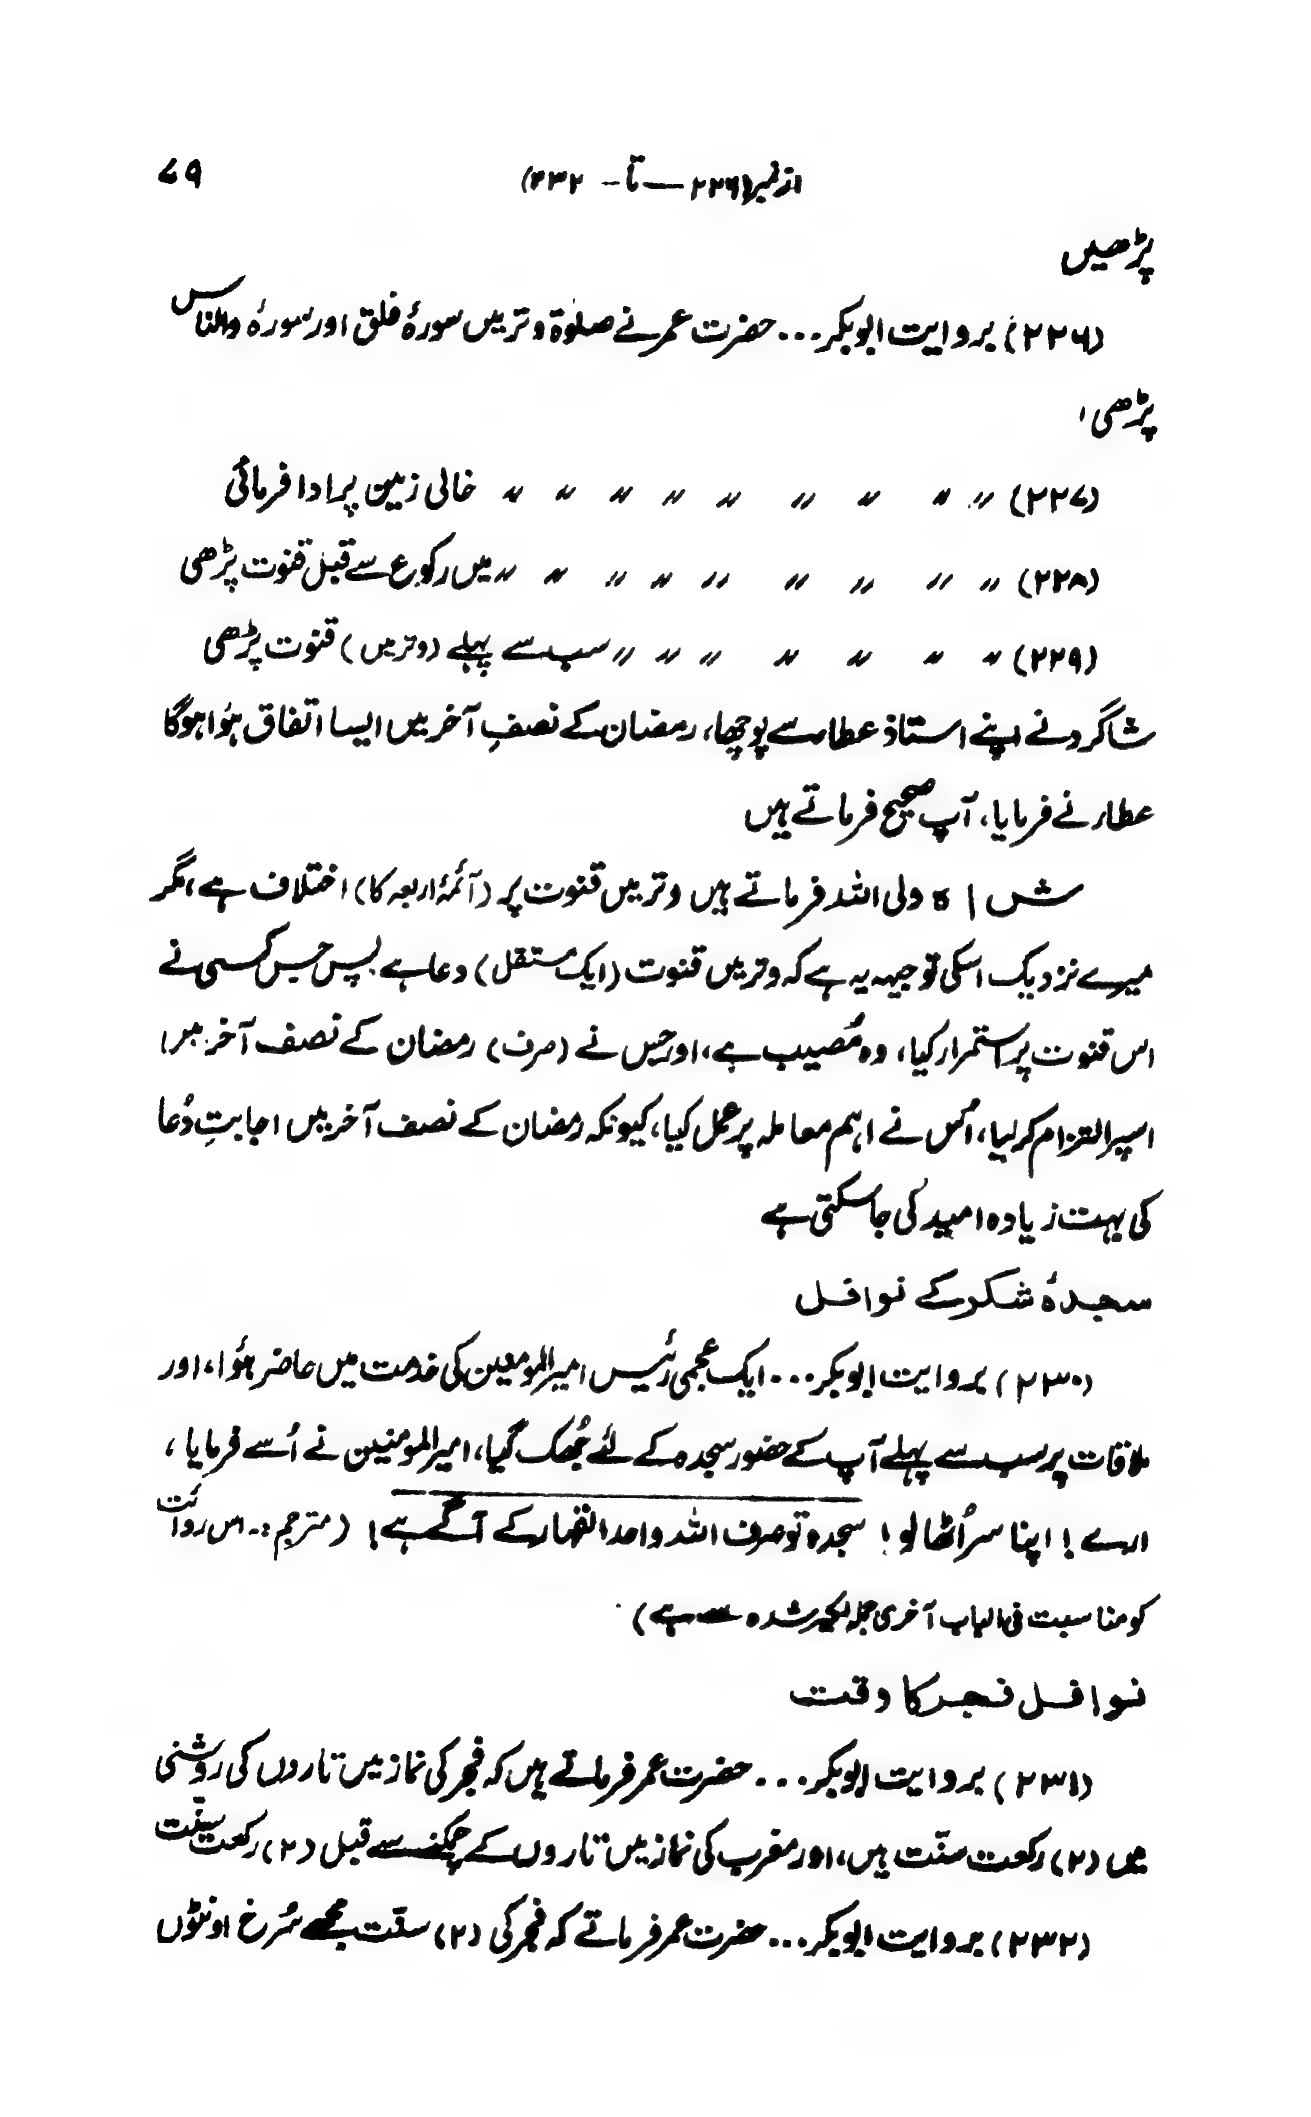 از نمبر (۲۲۶ — تا — ۲۳۲) ۷۹
پڑھیں
(۲۲۶) بروایت ابوبکر... حضرت عمر نے صلوٰۃ وتر میں سورۂ فلق اور سورہ والناس
پڑھی،
(۲۲۷) 〃 〃 〃 〃 〃 〃 〃 〃 〃 خالی زمین پر ادا فرمائی
(۲۲۸) 〃 〃 〃 〃 〃 〃 〃 〃 〃 میں رکوع سے قبل قنوت پڑھی
(۲۲۹) 〃 〃 〃 〃 〃 〃 〃 سب سے پہلے (وتر میں) قنوت پڑھی
شاگرد نے اپنے استاذ عطاء سے پوچھا، رمضان کے نصفِ آخر میں ایسا اتفاق ہُوا ہوگا
عطاء نے فرمایا، آپ صحیح فرماتے ہیں
شاہ ولی اللہ فرماتے ہیں وتر میں قنوت پر (آئمۂ اربعہ کا) اختلاف ہے، مگر
میرے نزدیک اسکی توجیہہ یہ ہے کہ وتر میں قنوت (ایک مستقل) دعا ہے پس جس کسی نے
اس قنوت پر استمرار کیا، وہ مُصیب ہے، اور جس نے (صرف) رمضان کے نصف آخر میں
اسپر التزام کر لیا، اُس نے اہم معاملہ پر عمل کیا، کیونکہ رمضان کے نصف آخر میں اجابتِ دُعا
کی بہت زیادہ امید کی جا سکتی ہے
سجدۂ شکر کے نوافل
(۲۳۰) بروایت ابوبکر... ایک عجمی رئیس امیر المومنین کی خدمت میں حاضر ہُوا، اور
ملاقات پر سب سے پہلے آپ کے حضور سجدہ کے لئے جُھک گیا، امیر المومنین نے اُسے فرمایا،
ارے! اپنا سر اُٹھا لو! سجدہ تو صرف اللہ واحد القہار کے آگے ہے! (مترجم:۔ اس روائت
کو مناسبت فی الباب آخری جملہ لکیر شدہ سے ہے)
نوافل فجر کا وقت
(۲۳۱) بروایت ابوبکر... حضرت عمر فرماتے ہیں کہ فجر کی نماز میں تاروں کی روشنی
میں (۲) رکعت سنّت ہیں، اور مغرب کی نماز میں تاروں کے چمکنے سے قبل (۲) رکعت سنّت
(۲۳۲) بروایت ابوبکر... حضرت عمر فرماتے کہ فجر کی (۲) سنّت مجھے سُرخ اونٹوں